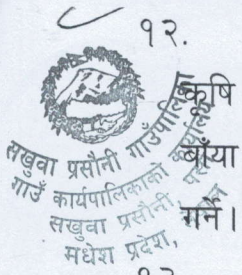 १२.
कृषि
बाँया
गर्ने।
सखुवा प्रसौनी गाउँपालिका
गाउँ कार्यपालिकाको कार्यालय
सखुवा प्रसौनी,
मधेश प्रदेश,